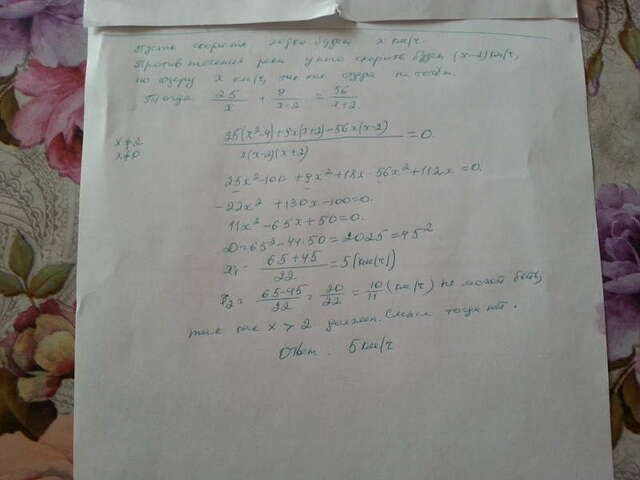 Пусть скорость лодки будет x км/ч.
Против течения реки у него скорость будет (x-2) км/ч,
по озеру x км/ч, так как озера
Тогда 25/x + 9/(x-2) = 56/(x+2)
x≠2
x≠0
(25(x²-4)+9x(x+2)-56x(x-2))/(x(x-2)(x+2)) = 0.
25x²-100+9x²+18x-56x²+112x=0.
-22x²+130x-100=0.
11x²-65x+50=0.
D=65²-44·50=2025=45²
x₁= (65+45)/22 = 5 (км/ч)
x₂= (65-45)/22 = 20/22 = 10/11 (км/ч) не может быть,
так как x > 2 должен. Смысл тогда нет.
Ответ. 5 км/ч